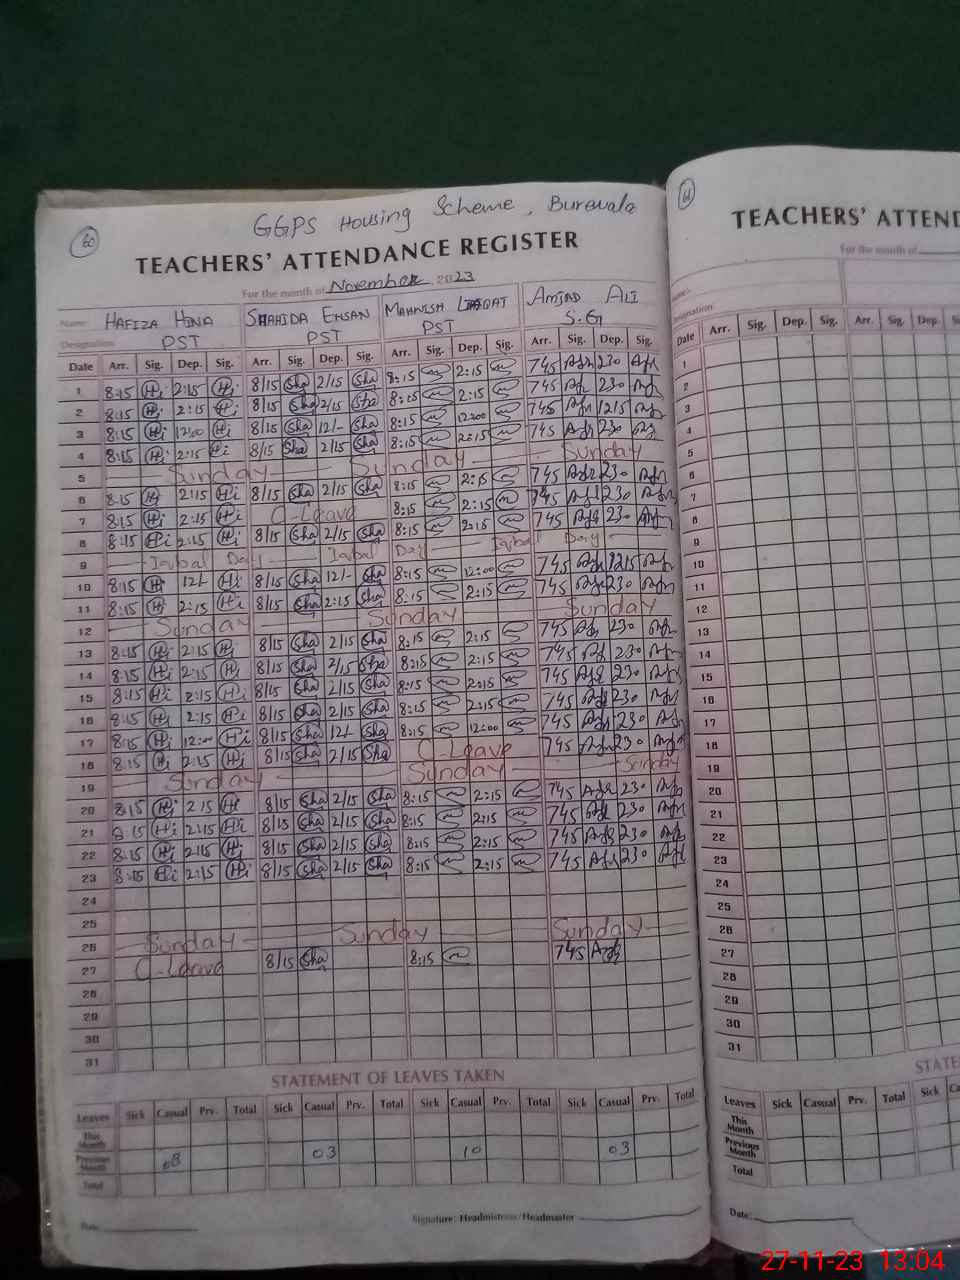 60
GGPS Housing Scheme, Burewala
TEACHERS' ATTENDANCE REGISTER
For the month of November 2023
Name: HAFIZA HINA SHAHIDA EHSAN MAHNISH LIAQAT AMJAD ALI
Designation: PST PST PST S.G
Date Arr. Sig. Dep. Sig. Arr. Sig. Dep. Sig. Arr. Sig. Dep. Sig. Arr. Sig. Dep. Sig.
1 8:15 Hi 2:15 Hi 8/15 Sha 2/15 Sha 8:15 2:15 745 230
2 8:15 Hi 2:15 Hi 8/15 Sha 2/15 Sha 8:15 2:15 745 230
3 8:15 Hi 12:00 Hi 8/15 Sha 12/- Sha 8:15 12:00 745 1215
4 8:15 Hi 2:15 Hi 8/15 Sha 2/15 Sha 8:15 2:15 745 230
5 Sunday Sunday Sunday
6 8:15 Hi 2:15 Hi 8/15 Sha 2/15 Sha 8:15 2:15 745 230
7 8:15 Hi 2:15 Hi C-Leave 8:15 2:15 745 230
8 8:15 Hi 2:15 Hi 8/15 Sha 2/15 Sha 8:15 2:15 745 230
9 Iqbal Day Iqbal Day Iqbal Day
10 8:15 Hi 12/- Hi 8/15 Sha 12/- Sha 8:15 12:00 745 1215
11 8:15 Hi 2:15 Hi 8/15 Sha 2:15 Sha 8:15 2:15 745 230
12 Sunday Sunday Sunday
13 8:15 Hi 2:15 Hi 8/15 Sha 2/15 Sha 8:15 2:15 745 230
14 8:15 Hi 2:15 Hi 8/15 Sha 2/15 Sha 8:15 2:15 745 230
15 8:15 Hi 2:15 Hi 8/15 Sha 2/15 Sha 8:15 2:15 745 230
16 8:15 Hi 2:15 Hi 8/15 Sha 2/15 Sha 8:15 2:15 745 230
17 8:15 Hi 12:00 Hi 8/15 Sha 12/- Sha 8:15 12:00 745 230
18 8:15 Hi 2:15 Hi 8/15 Sha 2/15 Sha C-Leave 745 230
19 Sunday Sunday Sunday
20 8:15 Hi 2:15 Hi 8/15 Sha 2/15 Sha 8:15 2:15 745 230
21 8:15 Hi 2:15 Hi 8/15 Sha 2/15 Sha 8:15 2:15 745 230
22 8:15 Hi 2:15 Hi 8/15 Sha 2/15 Sha 8:15 2:15 745 230
23 8:15 Hi 2:15 Hi 8/15 Sha 2/15 Sha 8:15 2:15 745 230
24
25
26 Sunday Sunday Sunday
27 C-Leave 8/15 Sha 8:15 745
28
29
30
31
STATEMENT OF LEAVES TAKEN
Leaves Sick Casual Prv. Total Sick Casual Prv. Total Sick Casual Prv. Total Sick Casual Prv. Total
This Month
Previous Month 08 03 10 03
Total
Date Signature: Headmistress/Headmaster
61
TEACHERS' ATTEND
For the month of
Name:
Designation:
Date Arr. Sig. Dep. Sig. Arr. Sig. Dep.
1
2
3
4
5
6
7
8
9
10
11
12
13
14
15
16
17
18
19
20
21
22
23
24
25
26
27
28
29
30
31
STATE
Leaves Sick Casual Prv. Total Sick
This Month
Previous Month
Total
Date:
27-11-23 13:04